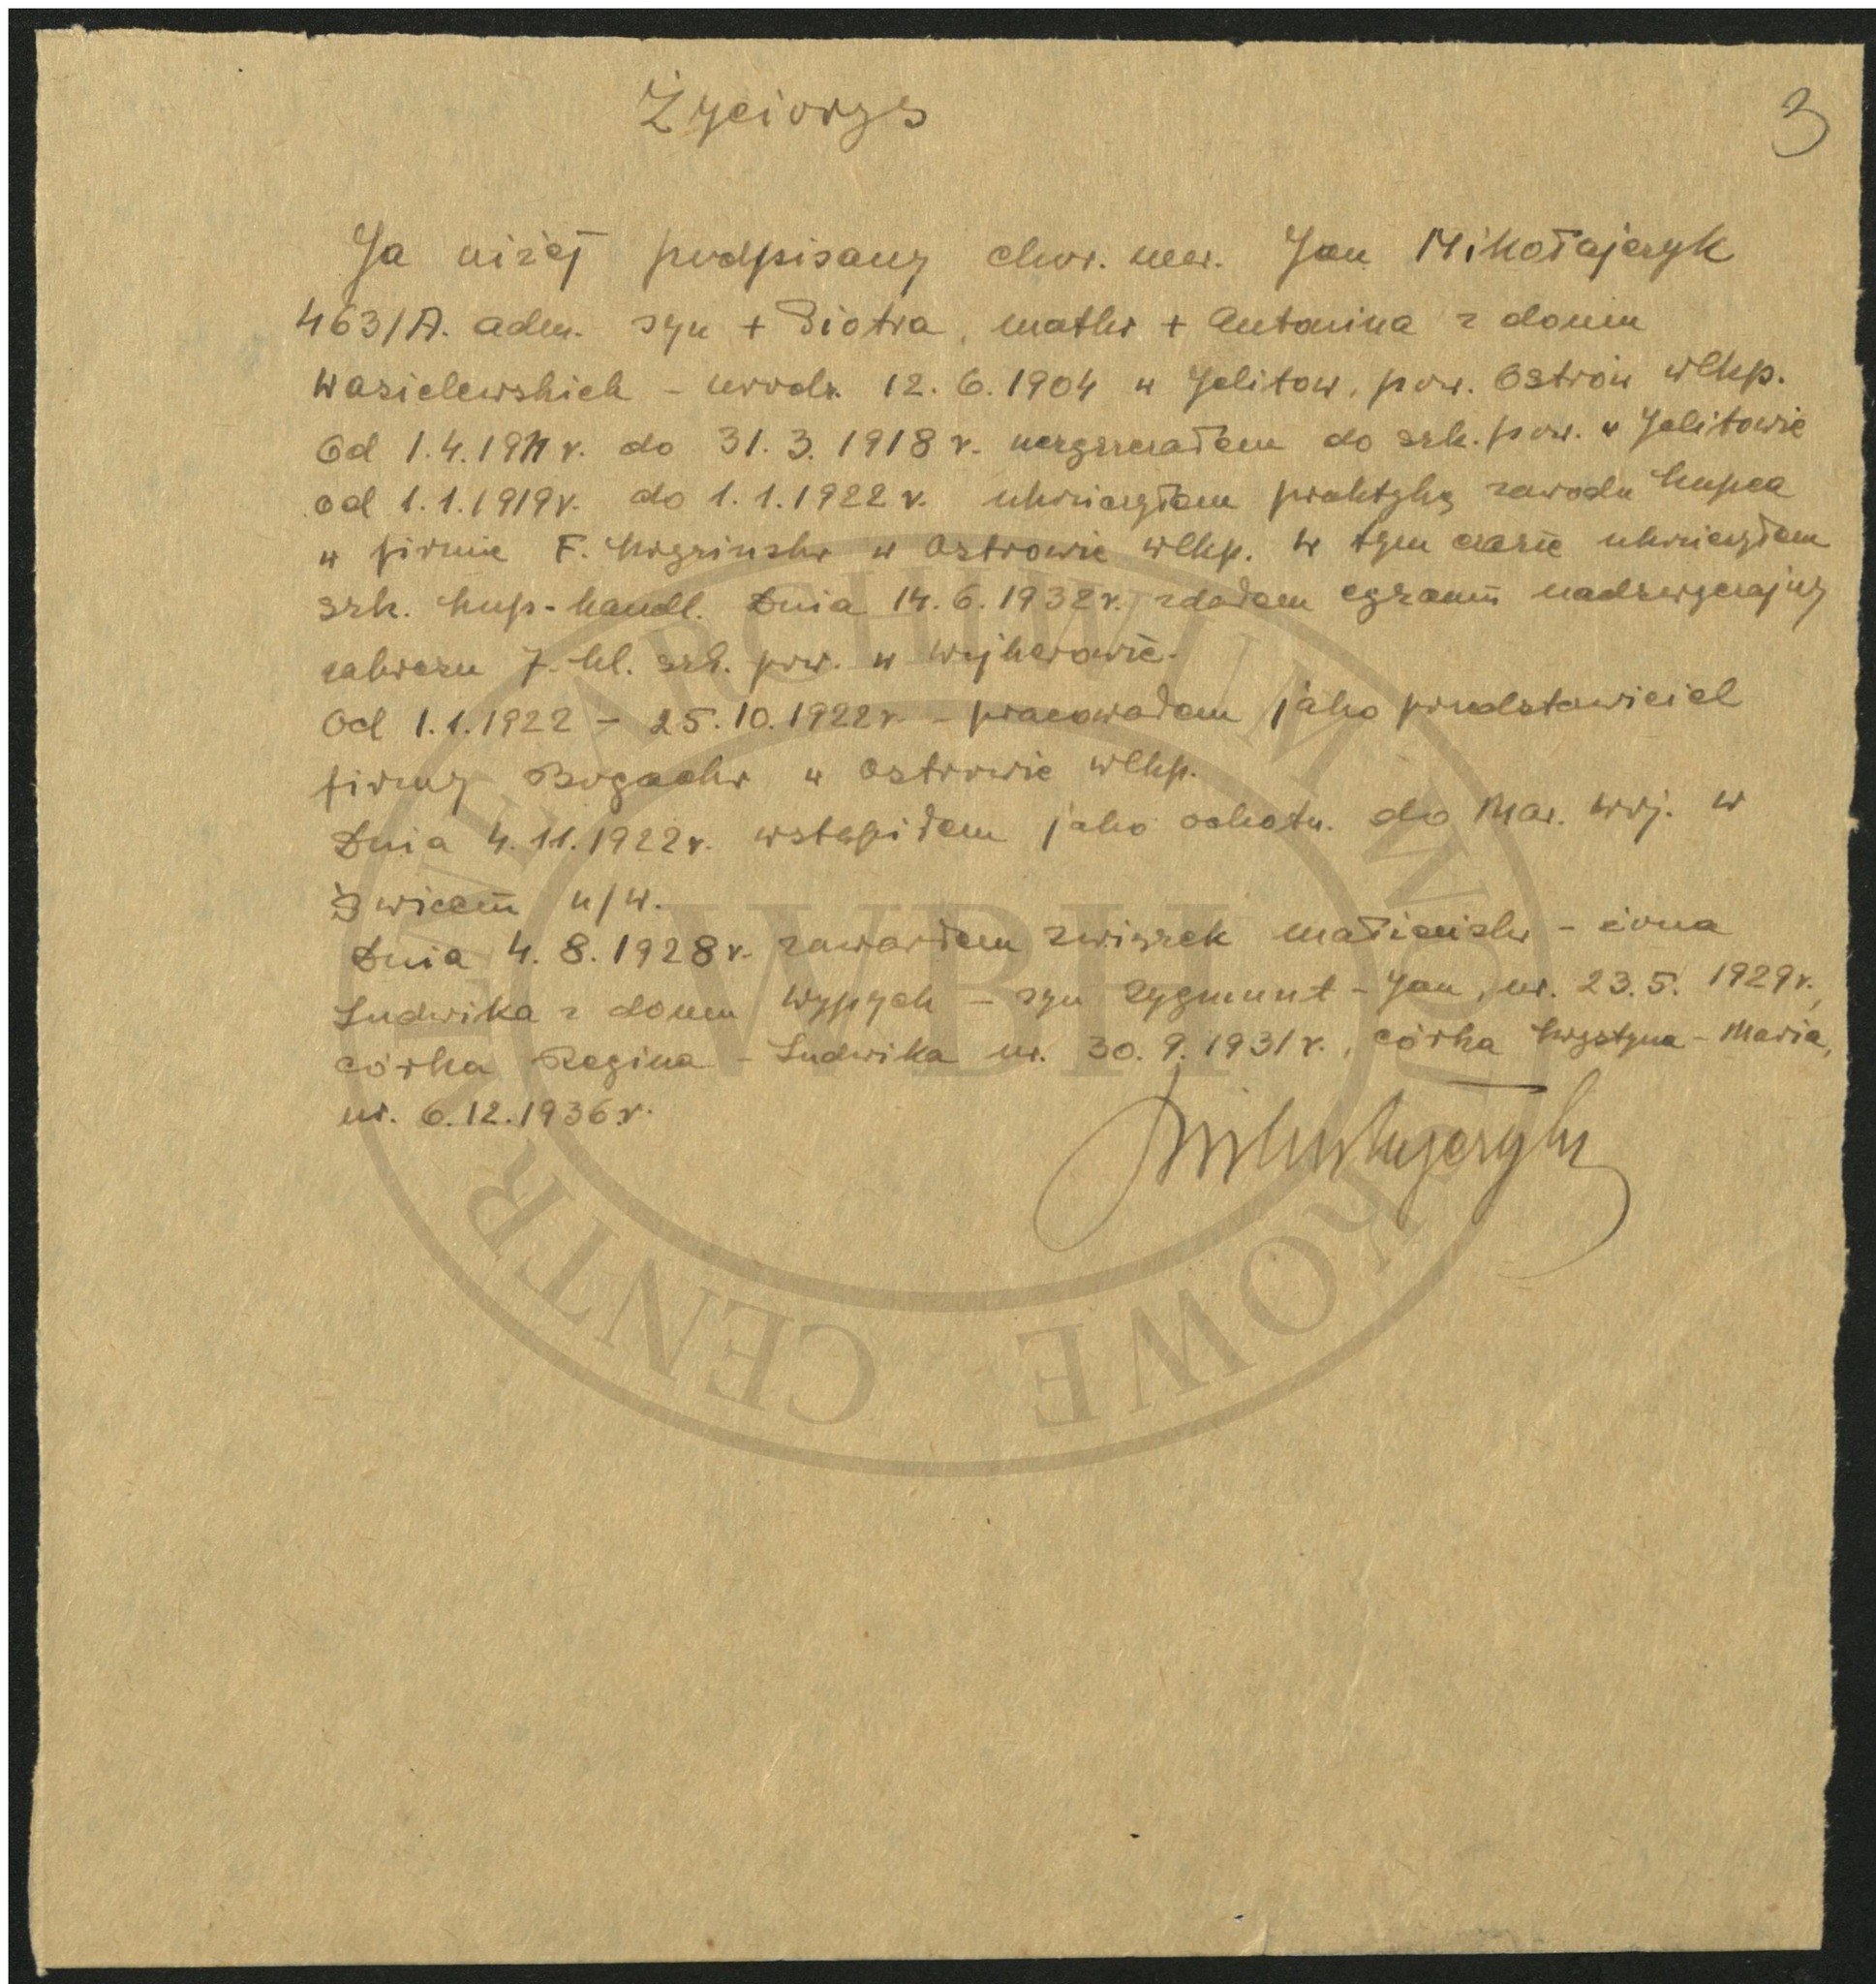 Życiorys
3
Ja niżej podpisany chor. mar. Jan Mikołajczyk
463/A. adm. syn + Piotra, matka + Antonina z domu
Wasielewskich – urodz. 12. 6. 1904 w Jelitow, pow. Ostrów wlkp.
Od 1. 4. 1911 r. do 31. 3. 1918 r. uczęszczałem do szk. pow. w Jelitowie
od 1. 1. 1919 r. do 1. 1. 1922 r. ukończyłem praktykę zawodu kupca
w firmie F. w Ostrowie wlkp. W tym czasie ukończyłem
szk. kup-handl. Dnia 14. 6. 1932 r. zdałem egzamin nadzwyczajny
zakresu 7. kl. szk. pow. w Wejherowie.
Od 1. 1. 1922 – 25. 10. 1922 r. – pracowałem jako przedstawiciel
firmy w Ostrowie wlkp.
Dnia 4. 11. 1922 r. wstąpiłem jako ochotn. do Mar. Woj. w
Świeciu n/W.
Dnia 4. 8. 1928 r. zawarłem związek małżeński – żona
Ludwika z domu Wypych – syn Zygmunt – Jan, ur. 23. 5. 1929 r.,
córka Regina – Ludwika ur. 30. 9. 1931 r., córka Krystyna – Maria,
ur. 6. 12. 1936 r.
Mikołajczyk
CENTRALNE ARCHIWUM WOJSKOWE
WBH